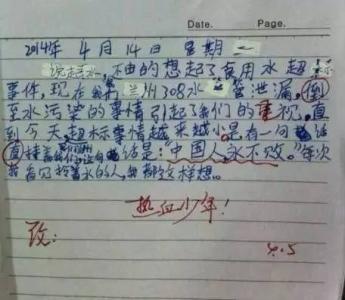 Date. Page.
2014年 4月14日 星期一
说起水，不由的想起了食用水超标
事件，现在 兰州308水 管泄漏，倒
至水污染的事情引起了我们的重视，直
到今天超标事情越来越小是有一句话
直 话是：“中国人永不败。”每次
看见 着水的人，我都这样想。
热血少年！
改：
4.5